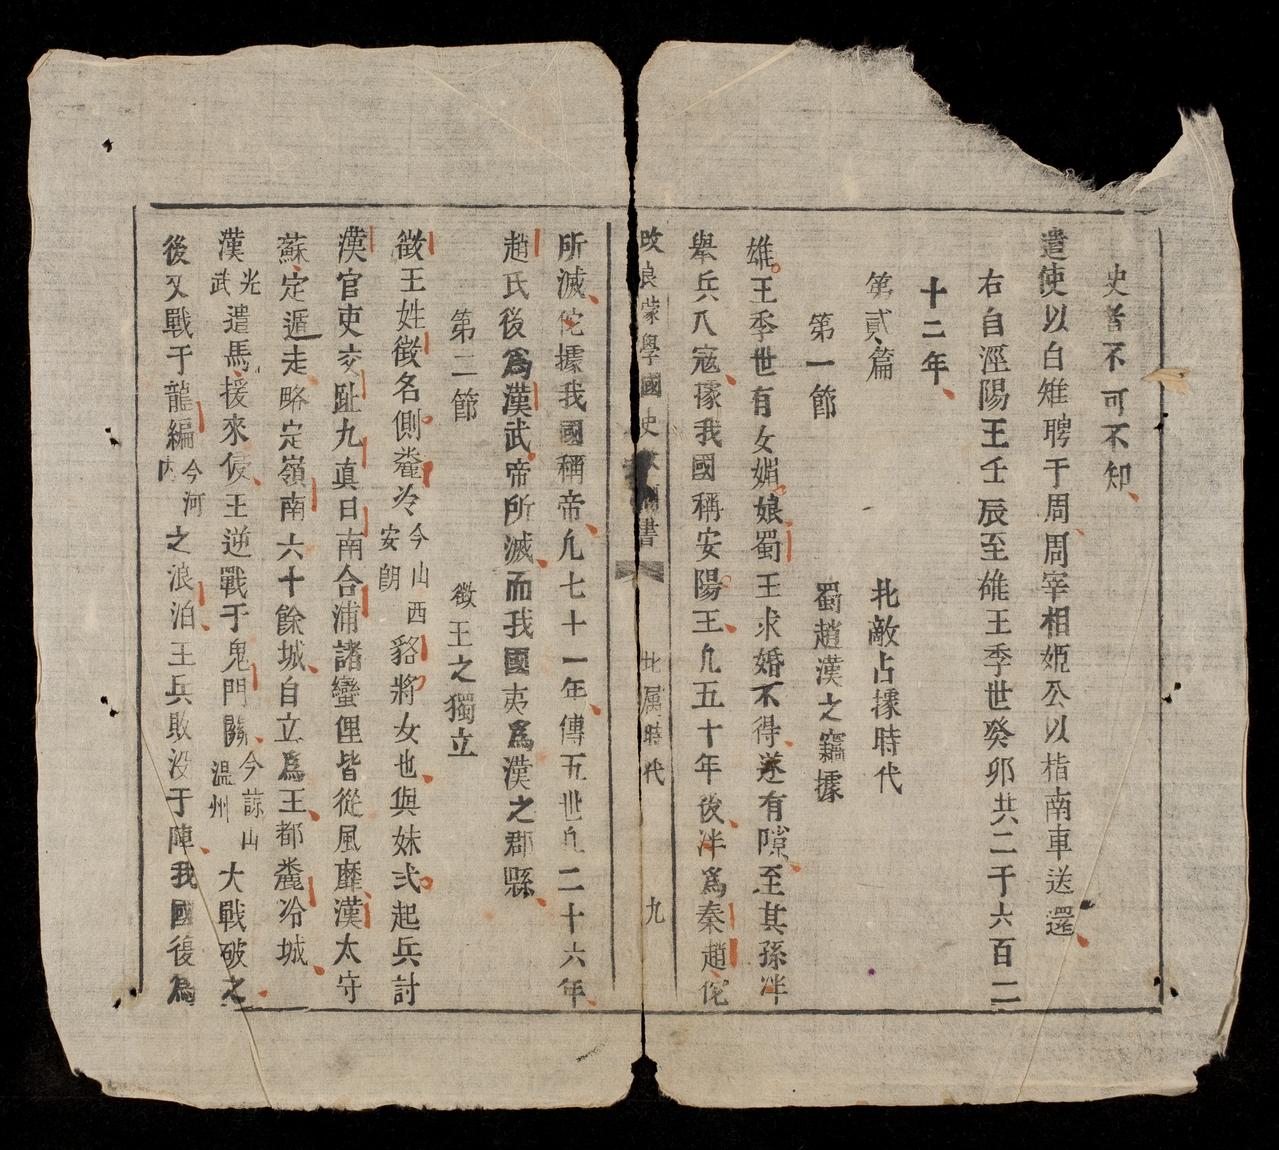 史者不可不知
遣使以白雉聘于周周宰相姬公以指南車送還
右自涇陽王壬辰至雄王季世癸卯共二千六百二
十二年
第貳篇 北敵占據時代
第一節 蜀趙漢之竊據
雄王季世有女媚娘蜀王求婚不得遂有隙至其孫泮
舉兵入寇據我國稱安陽王凢五十年後泮爲秦趙佗
改良蒙學國史 書 北属時代 九
所滅佗據我國稱帝凢七十一年傳五世凢二十六年
趙氏後爲漢武帝所滅而我國夷爲漢之郡縣
第二節 徵王之獨立
徵王姓徵名側麊泠今山西安朗貉將女也與妹弍起兵討
漢官吏交趾九真日南合浦諸蠻俚皆從風靡漢太守
蘇定遁走略定嶺南六十餘城自立爲王都麊泠城
漢光武遣馬援來侵王逆戰于鬼門關今諒山温州大戰破之
後又戰于龍編今河内之浪泊王兵敗没于陣我國復爲